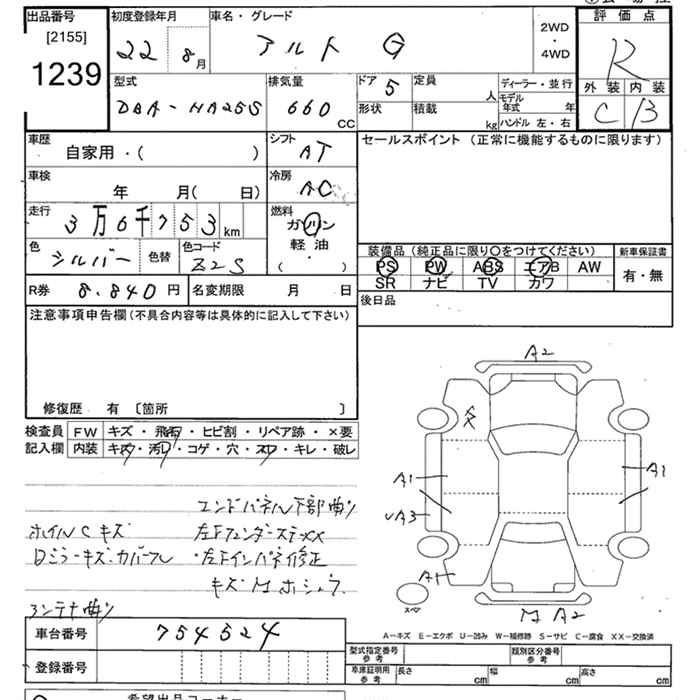 出品番号 初度登録年月 車名・グレード 2WD・4WD 評価点
[2155]
1239 22 8月 アルト G R
外装 内装
C B
型式 排気量 ドア 定員 ディーラー・並行
DBA-HA25S 660 CC 5 人 モデル年式 年
形状 積載 kg ハンドル 左・右
車歴 シフト セールスポイント (正常に機能するものに限ります)
自家用・( ) AT
車検 冷房
年 月( 日) AC
走行 燃料
3万6千753km ガソリン
軽油
( ・ )
色 色替 色コード
シルバー Z2S
装備品 (純正品に限り○をつけてください) 新車保証書
PS PW ABS エアB AW 有・無
SR ナビ TV カワ
R券 8,840円 名変期限 月 日
後日品
注意事項申告欄(不具合内容等は具体的に記入して下さい)
修復歴 有 〔箇所 〕
検査員 FW キズ・飛石・ヒビ割・リペア跡・×要
記入欄 内装 キズ・汚れ・コゲ・穴・スレ・キレ・破レ
エンドパネル下部曲り
ホイルCキズ 左FフェンダーステーXX
Dミラーキズ・カバーワレ ・左Fインパネ修正
キズ Mホシュウ
アンテナ曲り
A2
A1 A1
A3
A1
スペア
A2
A-キズ E-エクボ U-凹み W-補修跡 S-サビ C-腐食 XX-交換済
車台番号 754524
登録番号
型式指定番号 参考 類別区分番号 参考
車庫証明用 参考 長さ cm 幅 cm 高さ cm
希望出品コーナー